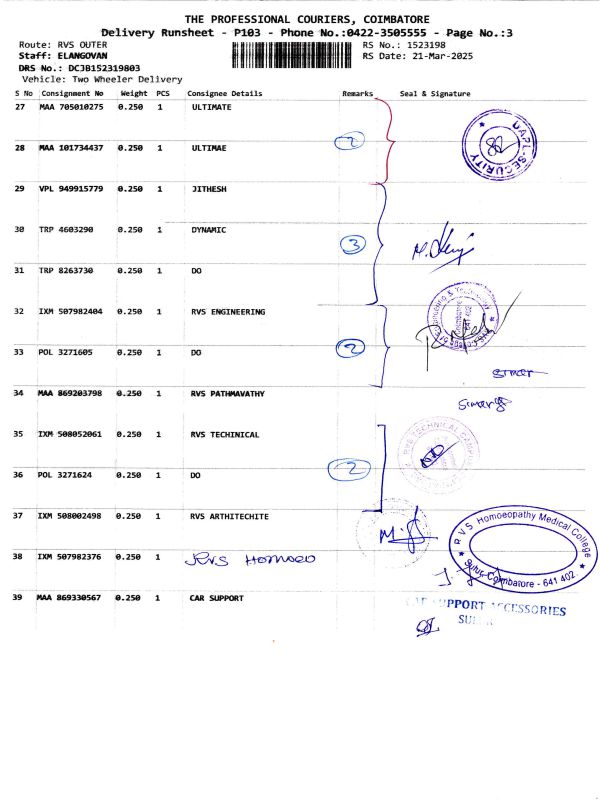 THE PROFESSIONAL COURIERS, COIMBATORE
Delivery Runsheet - P103 - Phone No.:0422-3505555 - Page No.:3
Route: RVS OUTER RS No.: 1523198
Staff: ELANGOVAN RS Date: 21-Mar-2025
DRS No.: DCJB152319803
Vehicle: Two Wheeler Delivery
S No Consignment No Weight PCS Consignee Details Remarks Seal & Signature
27 MAA 705010275 0.250 1 ULTIMATE
UAPL-SECURITY
2
28 MAA 101734437 0.250 1 ULTIMAE
29 VPL 949915779 0.250 1 JITHESH
30 TRP 4603290 0.250 1 DYNAMIC
3
31 TRP 8263730 0.250 1 DO
32 IXM 507982404 0.250 1 RVS ENGINEERING
641 402
33 POL 3271605 0.250 1 DO
2
34 MAA 869203798 0.250 1 RVS PATHMAVATHY
35 IXM 508052061 0.250 1 RVS TECHINICAL
RVS TECHNICAL CAMPUS
36 POL 3271624 0.250 1 DO
2
37 IXM 508002498 0.250 1 RVS ARTHITECHITE
RVS Homoeopathy Medical College
Sulur, Coimbatore - 641 402
38 IXM 507982376 0.250 1 RVS HOMOEO
39 MAA 869330567 0.250 1 CAR SUPPORT
CAR SUPPORT ACCESSORIES